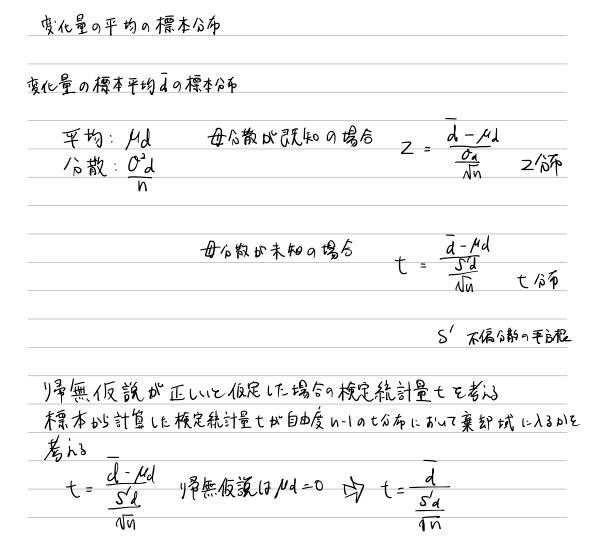 変化量の平均の標本分布
変化量の標本平均d̄の標本分布
平均: μd 母分散が既知の場合 z = (d̄ - μd) / (σd / √n) z分布
分散: σ²d / n
母分散が未知の場合 t = (d̄ - μd) / (s'd / √n) t分布
s' 不偏分散の平方根
帰無仮説が正しいと仮定した場合の検定統計量tを考える
標本から計算した検定統計量tが自由度n-1のt分布において棄却域に入るかを
考える
t = (d̄ - μd) / (s'd / √n) 帰無仮説はμd=0 ⇨ t = d̄ / (s'd / √n)